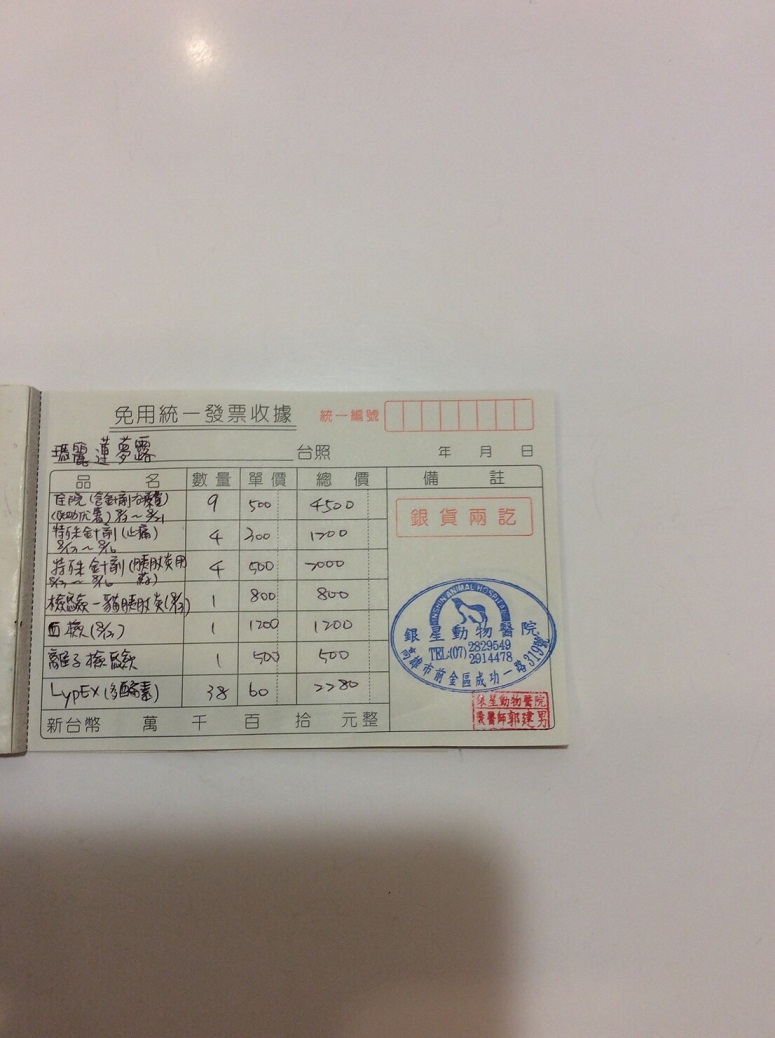 免用統一發票收據 統一編號
瑪麗蓮夢露 台照 年 月 日
品 名 數量 單價 總 價 備 註
住院(含針劑右療費) 9 500 4500
銀貨兩訖
特殊針劑(止痛) 4 300 1200
特殊針劑(胰臟炎用 4 500 2000
檢驗-貓胰臟炎(8/21) 1 800 800
血檢(8/21) 1 1200 1200
離子檢驗 1 500 500
LypEX(多酶素) 38 60 2280
新台幣 萬 千 百 拾 元整
YINSHIN ANIMAL HOSPITAL
銀星動物醫院
TEL:(07) 2829549
2914478
高雄市前金區成功一路319號
銀星動物醫院
獸醫師郭建男